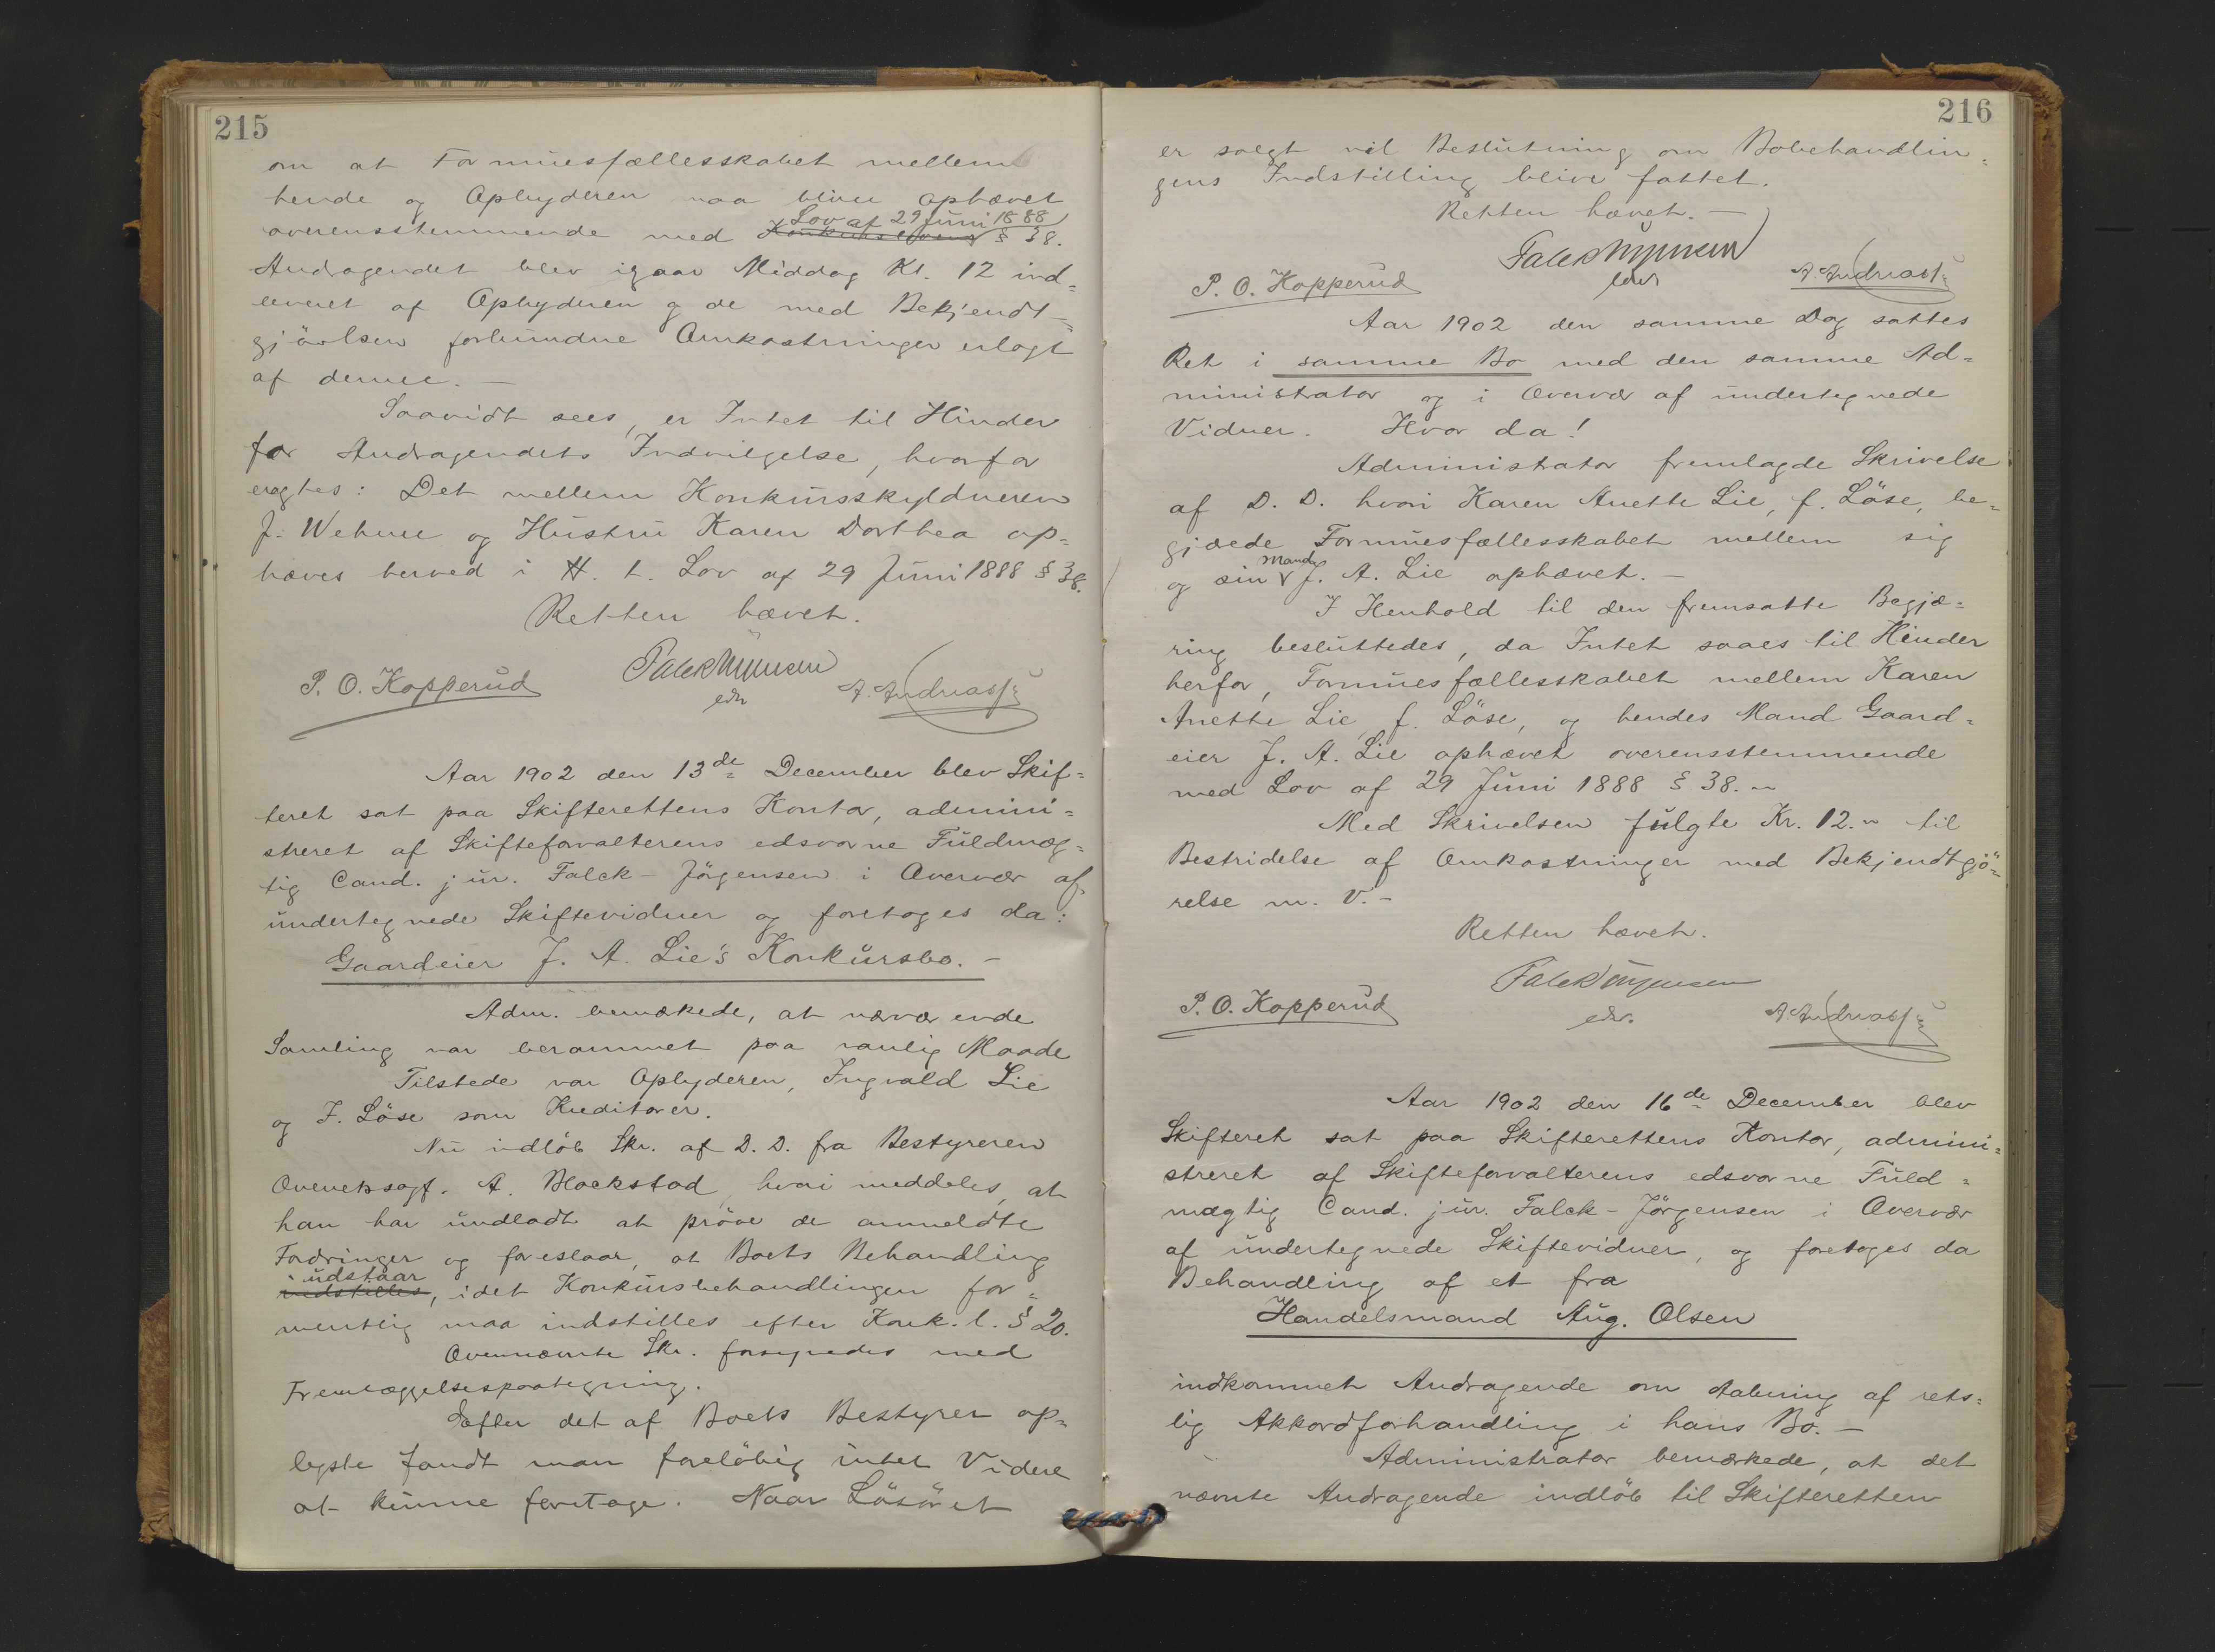 215
om at Formuesfællesskabet mellem
hende og Opbyderen maa blive ophævet
Lov af 29 Juni 1888
overensstemmende med Konkurslovens § 38.
Andragendet blev igaar Middag Kl. 12 ind=
leveret af Opbyderen og de med Bekjendt=
gjörelsen forbundne Omkostninger erlagt
af denne. —
Saavidt sees, er Intet til Hinder
for Andragendets Indvilgelse, hvorfor
eragtes: Det mellem Konkursskyldneren
J. Wehne og Hustru Karen Dorthea op=
hæves herved i H. t. Lov af 29 Juni 1888 § 38.
Retten hævet.
P. O. Kopperud Falck Jörgensen A. Andreass:
edsv
Aar 1902 den 13de December blev Skif=
teret sat paa Skifterettens Kontor, admini=
streret af Skifteforvalterens edsvorne Fuldmæg=
tig Cand. jur. Falck-Jörgensen i Overvær af
undertegnede Skiftevidner og foretoges da:
Gaardeier J. A. Lie's Konkursbo. —
Adm. bemærkede, at nærværende
Samling var berammet paa vanlig Maade
Tilstede var Opbyderen, Ingvald Lie
og J. Löse som Kreditorer.
Nu indlöb Skr. af D. D. fra Bestyreren
Overretssagf. A. Blackstad, hvori meddeles, at
han har undladt at pröve de anmeldte
Fordringer og foreslaar, at Boets Behandling
udstaar
indstilles, idet Konkursbehandlingen for=
mentlig maa indstilles efter Konk. l. § 20.
Ovennævnte Skr. forsynedes med
Fremlæggelsespaategning.
Efter det af Boets Bestyrer op=
lyste fandt man foreløbig intet Videre
at kunne foretage. Naar Lösöret
216
er solgt vil Beslutning om Bobehandlin=
gens Indstilling blive fattet.
Retten hævet. —
P. O. Kopperud Falck Jörgensen A. Andreass:
edsv
Aar 1902 den samme Dag sattes
Ret i samme Bo med den samme Ad=
ministrator og i Overvær af undertegnede
Vidner. Hvor da!
Administrator fremlagde Skrivelse
af D. D. hvori Karen Anette Lie, f. Löse, be=
gjærede Formuesfællesskabet mellem sig
Mand
og sin J. A. Lie ophævet. —
I Henhold til den fremsatte Begjæ=
ring besluttedes, da Intet saaes til Hinder
herfor, Formuesfællesskabet mellem Karen
Anette Lie, f. Löse, og hendes Mand Gaard=
eier J. A. Lie ophævet overensstemmende
med Lov af 29 Juni 1888 § 38. —
Med Skrivelsen fulgte Kr. 12.- til
Bestridelse af Omkostninger med Bekjendtgjö=
relse m. V. -
Retten hævet.
P. O. Kopperud Falck Jörgensen A. Andreass:
edsv.
Aar 1902 den 16de December blev
Skifteret sat paa Skifterettens Kontor, admini=
streret af Skifteforvalterens edsvorne Fuld=
mægtig Cand. jur. Falck-Jörgensen i Overvær
af undertegnede Skiftevidner, og foretoges da
Behandling af et fra
Handelsmand Aug. Olsen
indkommet Andragende om Aabning af rets=
lig Akkordforhandling i hans Bo. —
Administrator bemærkede, at det
nævnte Andragende indlöb til Skifteretten